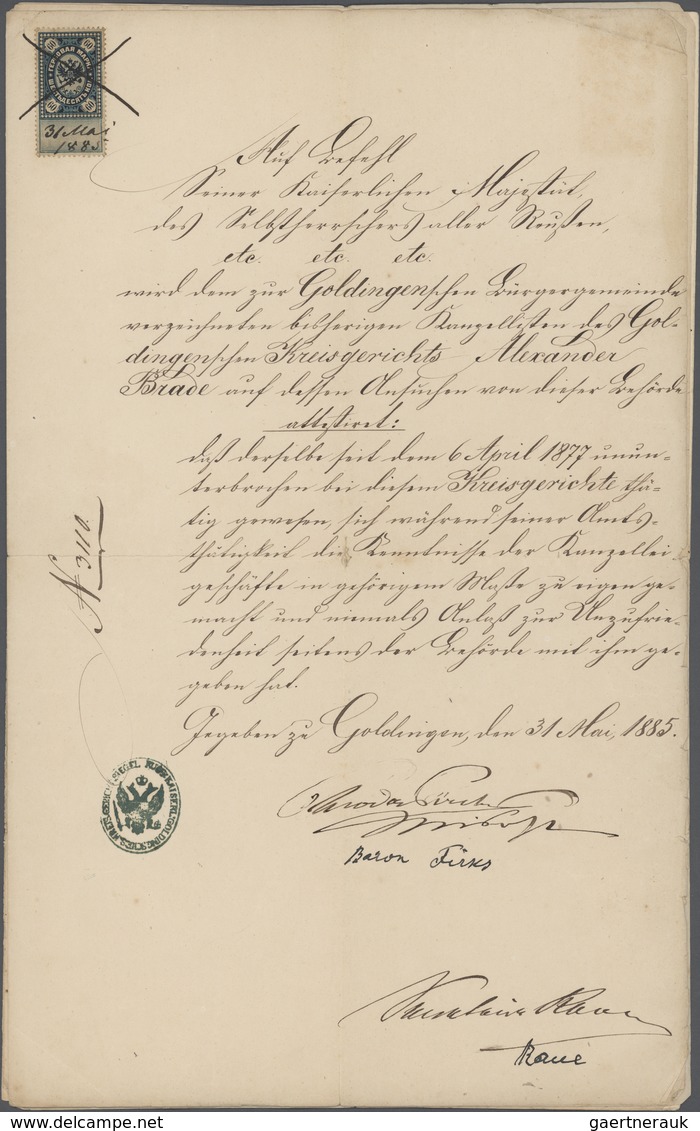 60 60
ГЕРБОВАЯ МАРКА
ШЕСТЬДЕСЯТЬ КОП
60 60
31 Mai
1885
Auf Befehl
Seiner Kaiserlichen Majestät,
des Selbstherrschers aller Reußen,
etc. etc. etc.
wird dem zur Goldingenschen Bürgergemeinde
verzeichneten bisherigen Kanzellisten des Gol-
dingenschen Kreisgerichts Alexander
Bräde auf dessen Ansuchen von dieser Behörde
attestiret:
daß derselbe seit dem 6 April 1877 unun-
terbrochen bei diesem Kreisgerichte thä-
tig gewesen, sich während seiner Amts-
thätigkeit die Kenntnisse der Kanzellei
geschäfte in gehörigem Maße zu eigen ge-
macht und niemals Anlaß zur Unzufrie-
denheit seitens der Behörde mit ihm ge-
geben hat.
Gegeben zu Goldingen, den 31 Mai, 1885.
N 3110.
SIEGEL RUSS: KAISERL: GOLDINGSCHES KREISGERICHTS
Baron Firks
Secretaire
Raue
gaertnerauk
delcampe.net